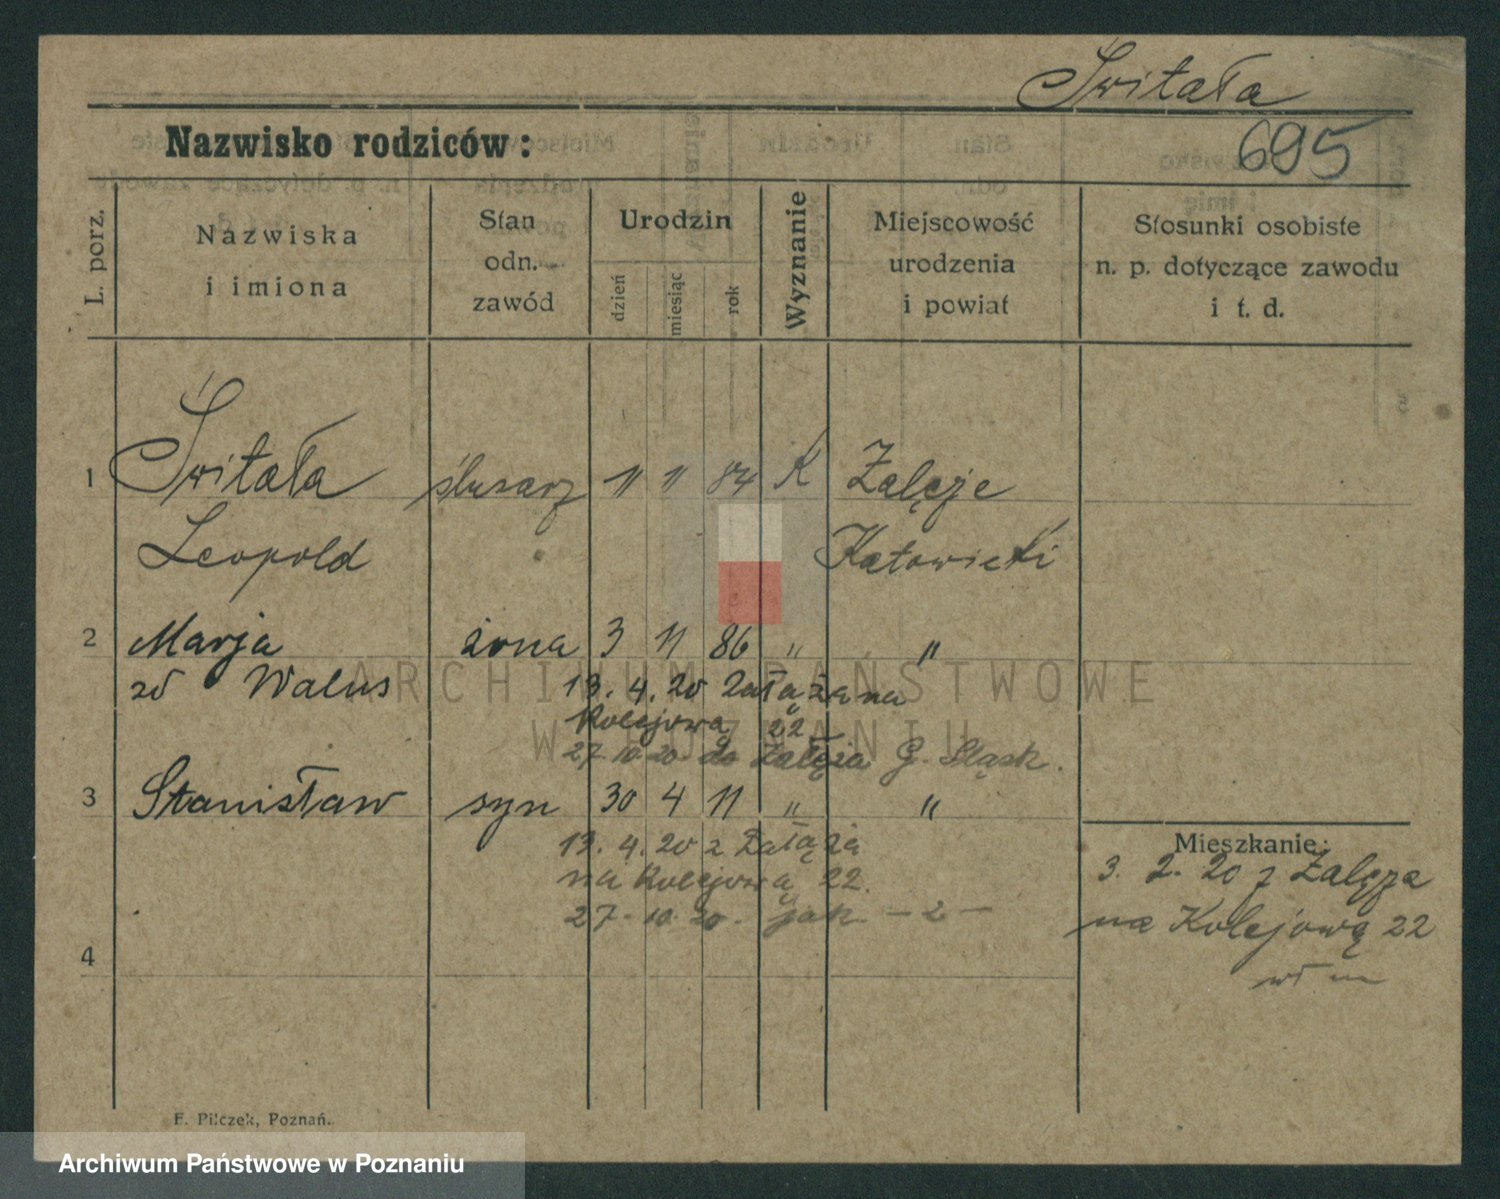 Świtała
Nazwisko rodziców:
695
L. porz.
Nazwiska
i imiona
Stan
odn.
zawód
Urodzin
dzień
miesiąc
rok
Wyznanie
Miejscowość
urodzenia
i powiat
Stosunki osobiste
n. p. dotyczące zawodu
i t. d.
1 Świtała ślusarz 11 11 84 K Zalęże
Leopold Katowicki
2 Marja żona 3 11 86 " "
zd Walus 13. 4. 20 Załąża na
Kolejową 22
27. 10. 20. do Załęża G. Śląsk.
3 Stanisław syn 30 4 11 " "
13. 4. 20 z Załąża
na Kolejową 22.
27. 10. 20. jak - 2 -
4
Mieszkanie:
3. 2. 20 z Zalęża
na Kolejową 22
F. Pilczek, Poznań.
ARCHIWUM PAŃSTWOWE
W POZNANIU
Archiwum Państwowe w Poznaniu